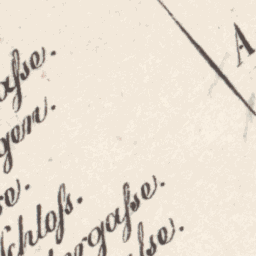 afse.
gen.
e.
Schlofs.
ergafse.
afse.
A